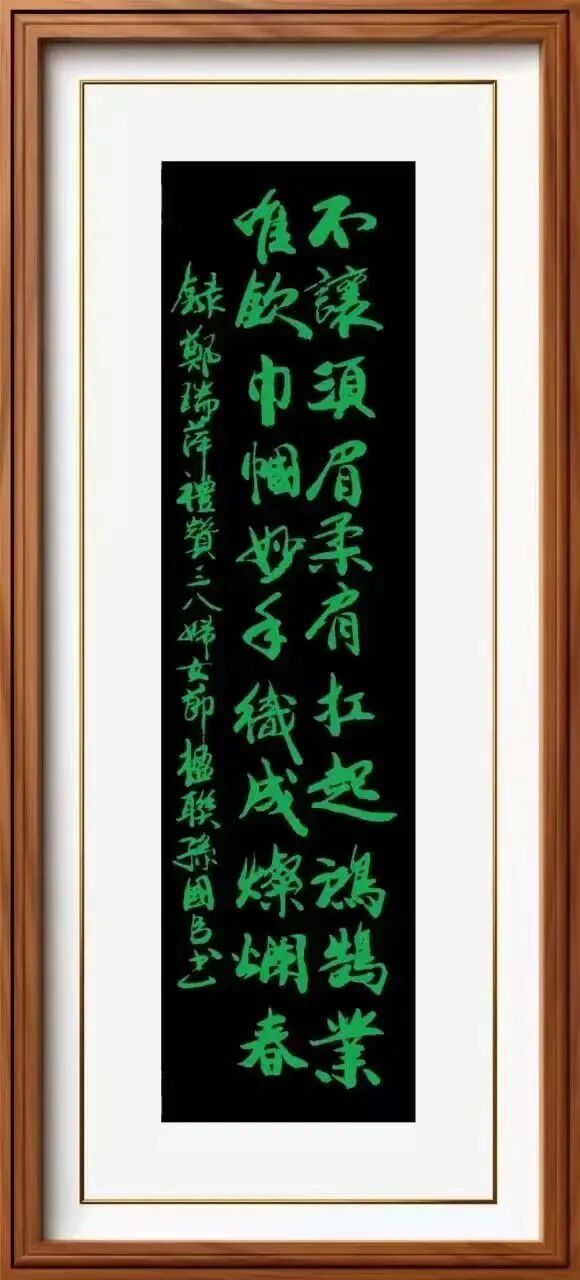 不讓須眉柔肩扛起鴻鵠業
唯欽巾幗妙手織成燦爛春
錄鄭瑞萍禮贊三八婦女節楹聯孫國書